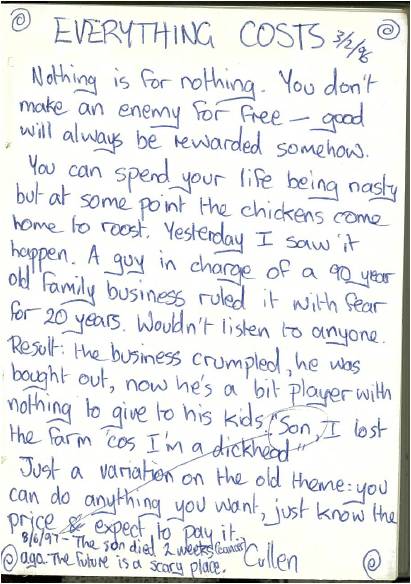 EVERYTHING COSTS 3/2/96
Nothing is for nothing. You don't
make an enemy for free — good
will always be rewarded somehow.
You can spend your life being nasty
but at some point the chickens come
home to roost. Yesterday I saw it
happen. A guy in charge of a 90 year
old family business ruled it with fear
for 20 years. Wouldn't listen to anyone.
Result: the business crumpled, he was
bought out, now he's a bit player with
nothing to give to his kids. "Son, I lost
the farm 'cos I'm a dickhead"
Just a variation on the old theme: you
can do anything you want, just know the
price & expect to pay it.
8/6/97 - The son died 2 weeks (cancer)
ago. The future is a scary place. Cullen